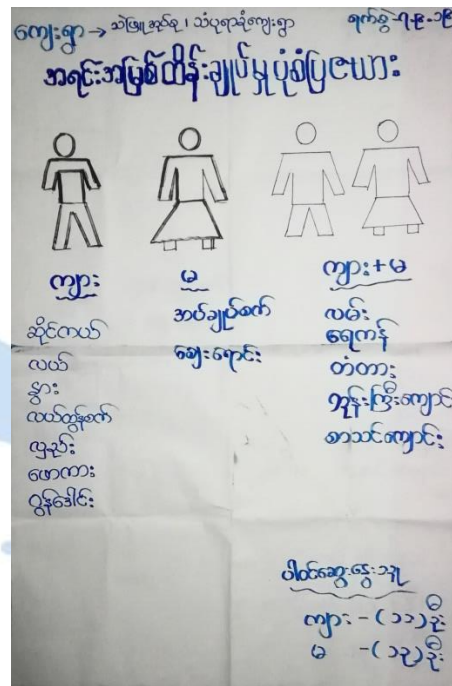 ကျေးရွာ → သဲဖြူအုပ်စု ၊ သံပုရာခုံကျေးရွာ
ရက်စွဲ-၇-၉-၁၉
အရင်းအမြစ်ထိန်းချုပ်မှုပုံစံပြဇယား
ကျား
ဆိုင်ကယ်
လယ်
နွား
လယ်ထွန်စက်
လှည်း
ဖောကား
ဂွန်ဒေါင်း
မ
အပ်ချုပ်စက်
ဈေးရောင်း
ကျား+မ
လမ်း
ရေကန်
တံတား
ဘုန်းကြီးကျောင်း
စာသင်ကျောင်း
ပါဝင်ဆွေးနွေးသူ
ကျား - (၁၁) ဦး
မ - (၁၃) ဦး